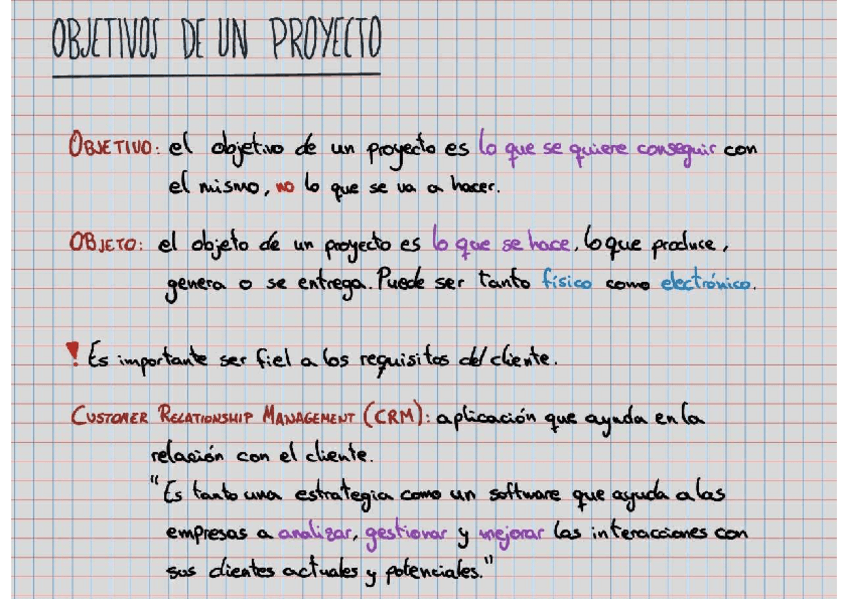 OBJETIVOS DE UN PROYECTO
OBJETIVO: el objetivo de un proyecto es lo que se quiere conseguir con
el mismo, no lo que se va a hacer.
OBJETO: el objeto de un proyecto es lo que se hace, lo que produce,
genera o se entrega. Puede ser tanto físico como electrónico.
! Es importante ser fiel a los requisitos del cliente.
CUSTOMER RELATIONSHIP MANAGEMENT (CRM): aplicación que ayuda en la
relación con el cliente.
"Es tanto una estrategia como un software que ayuda a las
empresas a analizar, gestionar y mejorar las interacciones con
sus clientes actuales y potenciales."